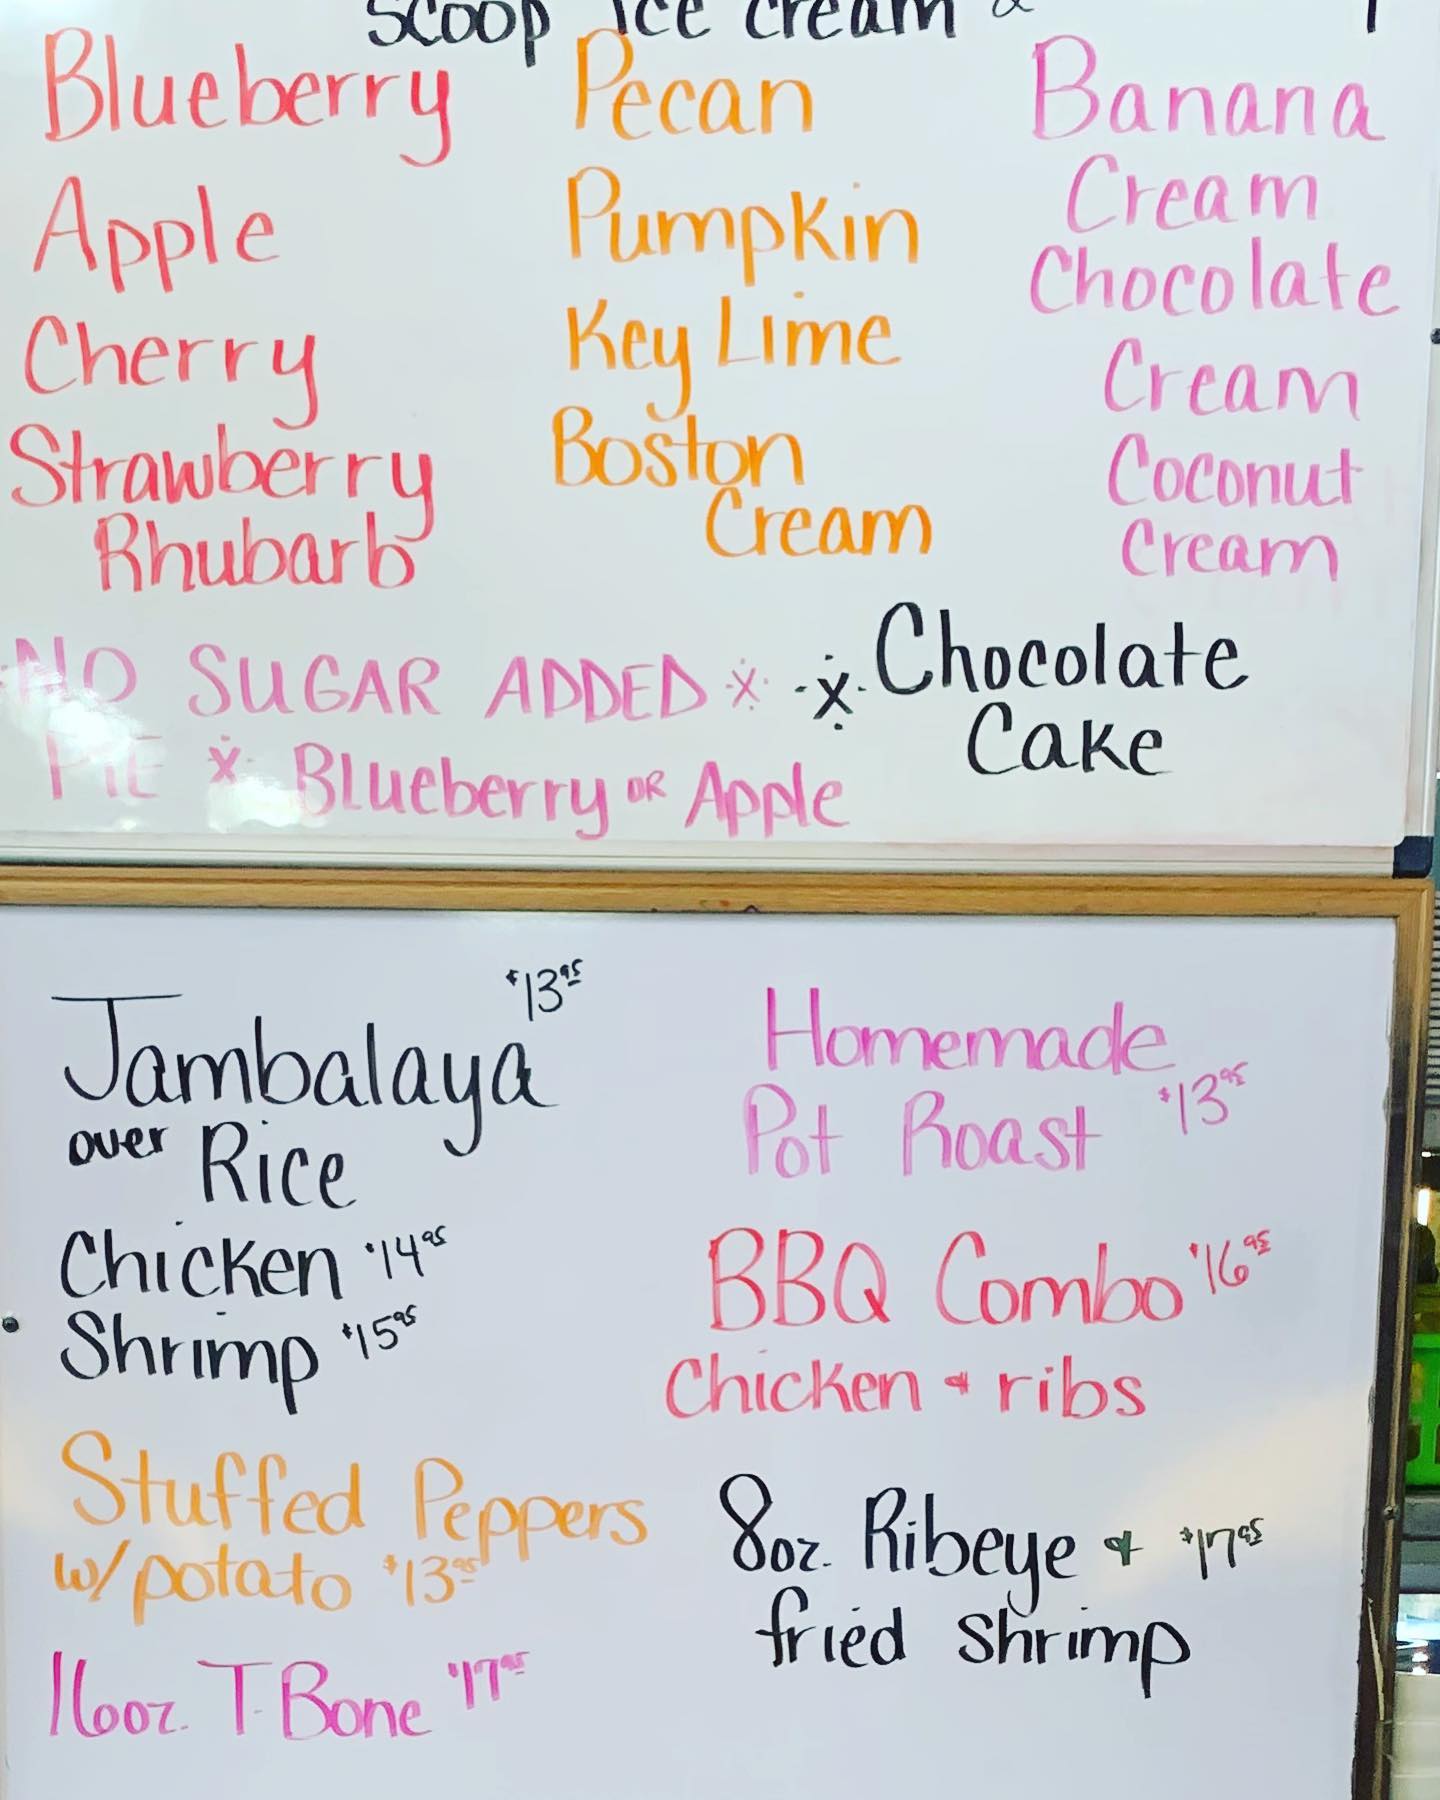 Scoop ice cream &
Blueberry
Apple
Cherry
Strawberry
Rhubarb
Pecan
Pumpkin
Key Lime
Boston
Cream
Banana
Cream
Chocolate
Cream
Coconut
Cream
NO SUGAR ADDED
PIE Blueberry OR Apple
Chocolate
Cake
$13.95
Jambalaya
over Rice
Chicken $14.95
Shrimp $15.95
Stuffed Peppers
w/potato $13.95
16oz. T-Bone $17.95
Homemade
Pot Roast $13.95
BBQ Combo $16.95
Chicken & ribs
8oz. Ribeye & $17.95
fried shrimp